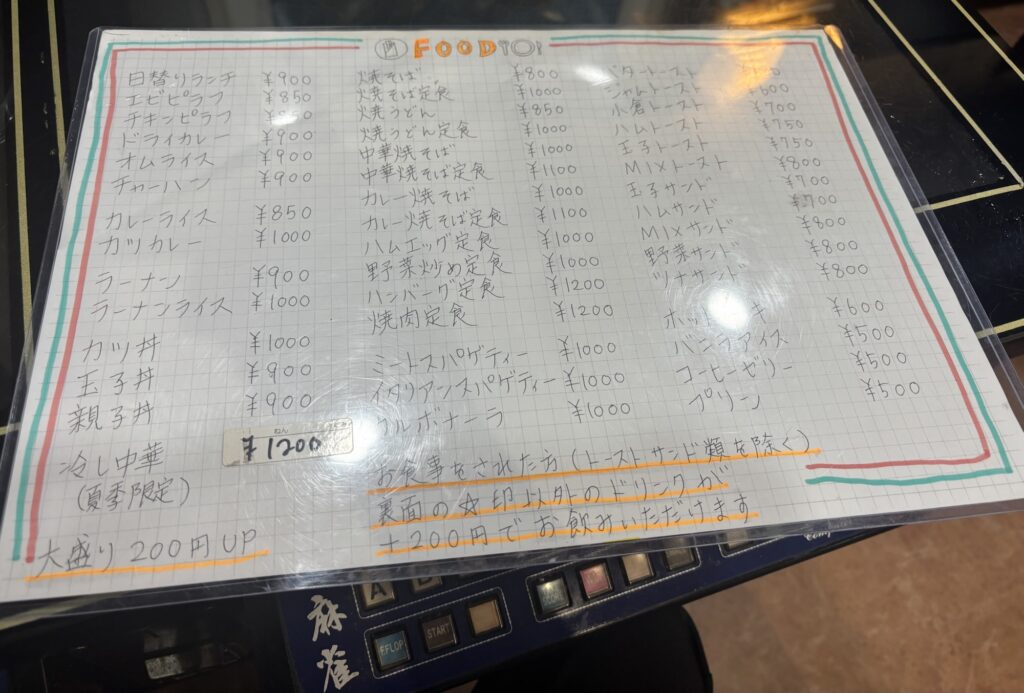 FOOD
日替りランチ ¥900
エビピラフ ¥850
チキンピラフ
ドライカレー ¥900
オムライス ¥900
チャーハン ¥900
カレーライス ¥850
カツカレー ¥1000
ラーメン ¥900
ラーメンライス ¥1000
カツ丼 ¥1000
玉子丼 ¥900
親子丼 ¥900
冷し中華 ¥1200
(夏季限定)
大盛り 200円UP
焼そば ¥800
焼そば定食 ¥1000
焼うどん ¥850
焼うどん定食 ¥1000
中華焼そば ¥1000
中華焼そば定食 ¥1100
カレー焼そば ¥1000
カレー焼そば定食 ¥1100
ハムエッグ定食 ¥1000
野菜炒め定食 ¥1000
ハンバーグ定食 ¥1200
焼肉定食 ¥1200
ミートスパゲティー ¥1000
イタリアンスパゲティー ¥1000
カルボナーラ ¥1000
バタートースト
ジャムトースト ¥600
小倉トースト ¥700
ハムトースト ¥750
玉子トースト ¥750
MIXトースト ¥800
玉子サンド ¥700
ハムサンド ¥700
MIXサンド ¥800
野菜サンド ¥800
ツナサンド ¥800
¥600
バニラアイス ¥500
コーヒーゼリー ¥500
プリン ¥500
お食事をされた方(トーストサンド類を除く)
裏面の☆印以外のドリンクが
+200円でお飲みいただけます
麻雀
A
START